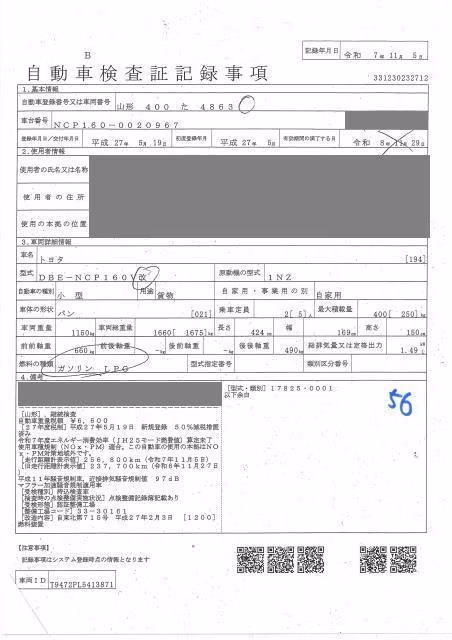 B
記録年月日 令和 7年11月 5日
自動車検査証記録事項
331230232712
1.基本情報
自動車登録番号又は車両番号 山形 400 た 4863
車台番号 NCP160-0020967
登録年月日/交付年月日 平成 27年 5月19日 初度登録年月 平成 27年 5月 有効期間の満了する日 令和 8年11月29日
2.使用者情報
使用者の氏名又は名称
使用者の住所
使用の本拠の位置
3.車両詳細情報
車名 トヨタ [194]
型式 DBE-NCP160V改 原動機の型式 1NZ
自動車の種別 小型 用途 貨物 自家用・事業用の別 自家用
車体の形状 バン [021] 乗車定員 2[ 5]人 最大積載量 400[ 250]kg
車両重量 1160kg 車両総重量 1660[ 1675]kg 長さ 424cm 幅 169cm 高さ 150cm
前前軸重 660kg 前後軸重 -kg 後前軸重 -kg 後後軸重 490kg 総排気量又は定格出力 1.49
燃料の種類 ガソリン LPG 型式指定番号 類別区分番号
4.備考
[型式・類別]17825-0001
以下余白
56
[山形]、継続検査
自動車重量税額 ¥6,600
[27年度税制]平成27年5月19日 新規登録 50%減税措置済み
令和7年度エネルギー消費効率(JH25モード燃費値)算定未了
使用車種規制(NOx・PM)適合、この自動車の使用の本拠はNOx・PM対策地域外です。
[走行距離計表示値]256,800km(令和7年11月5日)
[旧走行距離計表示値]237,700km(令和6年11月27日)
平成11年騒音規制車、近接排気騒音規制値 97dB
マフラー加速騒音規制適用車
[受検種別]持込検査車
[検査時の点検整備実施状況]点検整備記録簿記載あり
[受検形態]認証整備工場
[整備工場コード]33-30161
[改造内容]自東北第715号 平成27年2月3日 [1200]
燃料装置
【注意事項】
記録事項はシステム登録時点の情報となります
車両ID T9472PL5413871